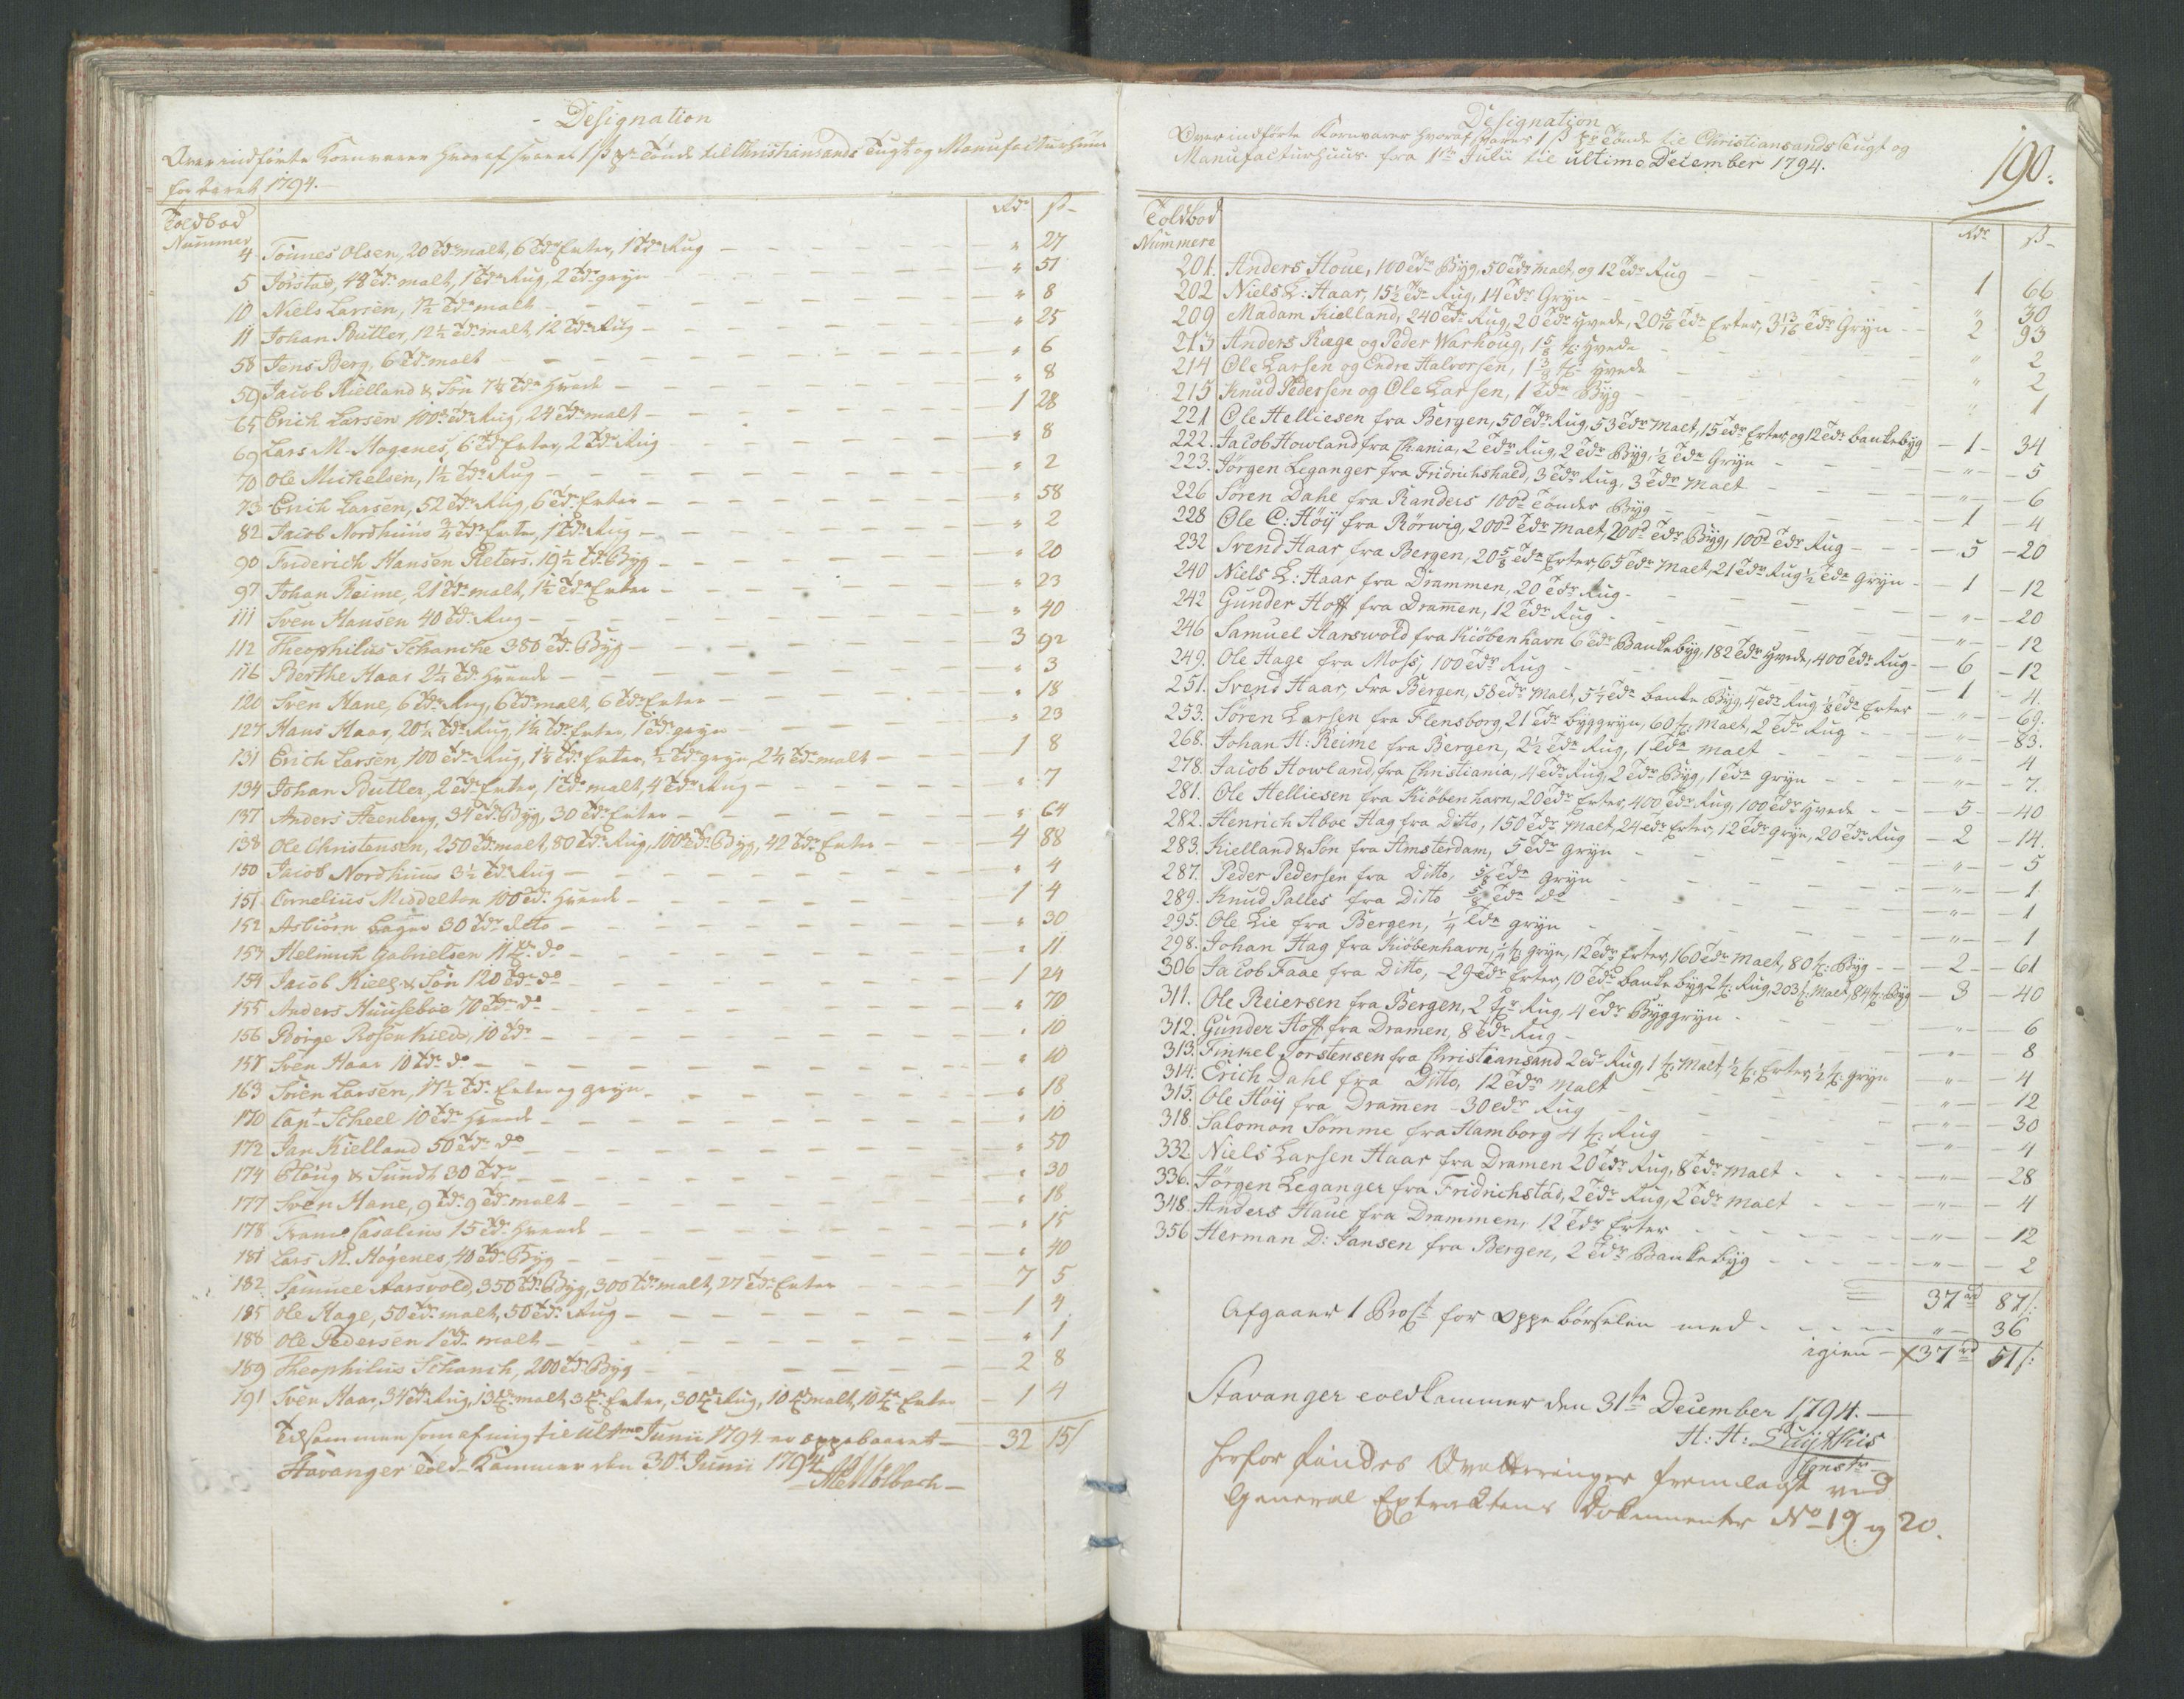 Designation
Over indförte Kornvarer hvoraf svares 1 ß pr Tönde til Christiansands Tugt og Manufacturhuus
for Aaret 1794.
Toldbod Nummer Rdr ß
4 Tönnes Olsen, 20 Tdr malt, 6 Tdr Erter, 1 Tde Rug " 27
5 Jörstad, 48 Tdr malt, 1 Tde Rug, 2 Tdr gryn " 51
10 Niels Larsen, 7½ Tdr malt " 8
11 Johan Butler, 12½ Tdr malt, 12 Tdr Rug " 25
58 Jens Berg, 6 Tdr malt " 6
59 Jacob Kielland & Sön 7¼ Tdr Hvede " 8
65 Erich Larsen 100 Tdr Rug, 24 Tdr malt 1 28
69 Lars M. Hogenes, 6 Tdr Erter, 2 Tdr Rug " 8
70 Ole Michelsen, 1½ Tde Rug " 2
73 Erich Larsen, 52 Tdr Rug, 6 Tdr Erter " 58
82 Jacob Nordhuus ¾ Tde Erter, 1 Tde Rug " 2
90 Friderich Hansen Pleters, 19½ Tdr Byg " 20
97 Johan Reime, 21 Tdr malt, 1½ Tde Erter " 23
111 Sven Hansen 40 Tdr Rug " 40
112 Theophilus Schanche 380 Tdr Byg 3 92
116 Berthe Haar 2¼ Tdr Hvede " 3
120 Sven Hane, 6 Tdr Rug, 6 Tdr malt, 6 Tdr Erter " 18
127 Hans Haar, 20¼ Tdr Rug, 1¼ Tdr Erter, 1 Tde gryn " 23
131 Erich Larsen, 100 Tdr Rug, 1¼ Tdr Erter, ½ Tde gryn 2¼ Tdr malt 1 8
134 Johan Butler, 2 Tdr Erter, 1 Tde malt, 4 Tdr Rug " 7
137 Anders Steenberg, 34 Tdr Byg, 30 Tdr Erter " 64
138 Ole Christensen, 250 Tdr malt, 80 Tdr Rug, 100 Tdr Byg, 42 Tdr Erter 4 88
150 Jacob Nordhuus 3½ Tdr Rug " 4
151 Cornelius Middelton 100 Tdr Hvede 1 4
152 Asbiörn Lager 30 Tdr detto " 30
153 Helmich Gabrielsen 11 Tdr do " 11
154 Jacob Kiell. & Sön 120 Tdr do 1 24
155 Anders Huuseboe 70 Tdr do " 70
156 Börge Rosenkilde, 10 Tdr " 10
158 Sven Haar 10 Tdr do " 10
163 Svien Larsen, 17½ Tdr Erter og gryn " 18
170 Capt Scheel 10 Tdr Hvede " 10
172 Jan Kielland 50 Tdr do " 50
174 Ploug & Sundt 30 Tdr " 30
177 Sven Hane, 9 Tdr 9 Tdr malt " 18
178 Frans Casalius 15 Tdr Hvede " 15
181 Lars M. Högenes, 40 Tdr Byg " 40
182 Samuel Aarsvold, 350 Tdr Byg, 300 Tdr malt, 27 Tdr Erter 7 5
185 Ole Hage, 50 Tdr malt, 50 Tdr Rug 1 4
188 Ole Pedersen 1 Tde malt " 1
189 Theophilus Schanch, 200 Tdr Byg 2 8
191 Sven Haar, 34 Tdr Rug, 13 Tdr malt, 3 Tdr Erter, 30 Tdr Rug, 10 Tdr malt, 10 Tdr Erter 1 4
Tilsammen som af mig til ultimo Junii 1794 er oppebaaret 32 15/
Stavanger Told-Kammer den 30te Junii 1794
Designation
Over indförte Kornvarer hvoraf svares 1 ß pr Tönde til Christiansands Tugt og
Manufacturhuus. fra 1ste Julii til ultimo December 1794.
190.
Toldbod Nummere Rdr ß
201. Anders Houe, 100 Tdr Byg, 50 Tdr malt, og 12 Tdr Rug 1 66
202 Niels L: Haar, 15½ Tdr Rug, 14 Tdr Gryn " 30
209 Madam Kielland, 240 Tdr Rug, 20 Tdr Hvede, 20 5/16 Tdr Erter, 3 13/16 Tdr Gryn 2 93
213 Anders Ræge og Peder Warhoug, 1 5/8 t: Hvede " 2
214 Ole Larsen og Endre Halvorsen, 1 3/4 t: Hvede " 2
215 Knud Pedersen og Ole Larsen, 1 Tde Byg " 1
221 Ole Helliesen fra Bergen, 50 Tdr Rug, 53 Tdr Malt, 15 Tdr Erter, og 12 Tdr bankebyg 1 34
222. Jacob Howland fra Chania, 2 Tdr Rug, 2 Tdr Byg, ½ Tde Gryn " 5
223. Jörgen Leganger fra Fridrichshald, 3 Tdr Rug, 3 Tdr Malt " 6
226 Sören Dahl fra Randers 100d Tönder Byg 1 4
228 Ole C: Höÿ fra Rörwig, 200d Tdr Malt, 200d Tdr Byg, 100d Tdr Rug 5 20
232 Svend Haar fra Bergen, 20 5/8 Tdr Erter, 65 Tdr Malt, 21 Tdr Rug ½ Tde Gryn 1 12
240 Niels L: Haar fra Drammen, 20 Tdr Rug " 20
242 Gunder Hoff fra Dramen, 12 Tdr Rug " 12
246 Samuel Harswold fra Kiöbenhavn 6 Tdr Bankebyg, 182 Tdr Hvede, 400 Tdr Rug 6 12
249. Ole Hage fra Moss, 100 Tdr Rug 1 4.
251. Svend Haar, Fra Bergen, 58 Tdr Malt, 5¼ Tdr banke Byg, 4 Tdr Rug 1/8 Tde Erter " 69.
253. Sören Larsen fra Flensborg, 21 Tdr byggryn, 60 t: Malt, 2 Tdr Rug " 83.
268. Johan H: Reime fra Bergen, 2½ Tdr Rug, 1 Tde malt " 4
278. Jacob Howland, fra Christiania, 4 Tdr Rug, 2 Tdr Byg, 1 Tde gryn " 7.
281. Ole Helliesen fra Kiöbenhavn, 20 Tdr Erter, 400 Tdr Rug, 100 Tdr Hvede 5 40
282. Henrich Aboe Hag fra Ditto, 150 Tdr Malt, 24 Tdr Erter, 12 Tdr Gryn, 20 Tdr Rug 2 14.
283. Kielland & Sön fra Amsterdam, 5 Tdr gryn " 5
287. Peder Pedersen fra Ditto, 5/8 Tde Gryn " 1
289. Knud Palles fra Ditto 5/8 Tde do " 1
295. Ole Lie fra Bergen, ¼ Tde gryn " 1
298. Johan Hag fra Kiöbenhavn, ¼ t: gryn, 12 Tdr Erter, 160 Tdr Malt, 80 t: Byg 2 61
306 Jacob Faae fra Ditto, 29 Tdr Erter, 10 Tdr banke byg 2 t: Rug, 203 t: Malt, 84 t: Byg 3 40
311. Ole Reiersen fra Bergen, 2 Tdr Rug, 4 Tdr Byggryn " 6
312. Gunder Hoff fra Dramen, 8 Tdr Rug " 8
313. Finkel Torstensen fra Christiansand 2 Tdr Rug, 1 t: Malt, ½ t: Erter, ½ t: gryn " 4
314. Erich Dahl fra Ditto, 12 Tdr Malt " 12
315. Ole Höÿ fra Dramen 30 Tdr Rug " 30
318. Salomon Somme fra Hamborg 4 t: Rug " 4
332. Niels Larsen Haar fra Dramen 20 Tdr Rug, 8 Tdr Malt " 28
336. Jörgen Leganger fra Fridrichstad, 2 Tdr Rug, 2 Tdr Malt " 4
348. Anders Haue fra Drammen, 12 Tdr Erter " 12
356 Herman D: Jansen fra Bergen, 2 Tdr Bankebyg " 2
37rd 87ß:
Afgaaer 1 Proct for Oppebörselen med " 36
igien 37rd 51ß:
Stavanger Toldkammer den 31te December 1794.
H: H:
Const:
herfor findes Qvitteringer fremlagt ved
General Extractens Dokumenter No 19 og 20.